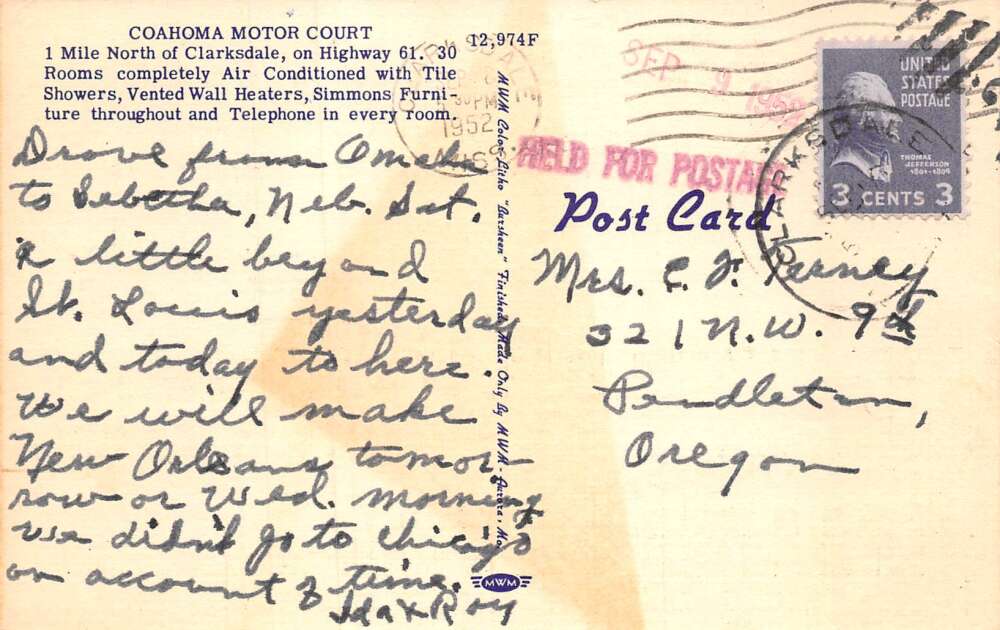 COAHOMA MOTOR COURT
1 Mile North of Clarksdale, on Highway 61. 30
Rooms completely Air Conditioned with Tile
Showers, Vented Wall Heaters, Simmons Furni-
ture throughout and Telephone in every room.
12,974F
Drove from Omaha
to Sebetha, Neb. Sat.
a little beyond
St. Louis yesterday
and today to here.
We will make
New Orleans tomor-
row or Wed. morning
We didn't go to Chicago
on account of time.
Ida & Roy
MWM Color-Litho "Dursheen" Finished, Made Only By MWM - Aurora, Mo.
MWM
CLARKSDALE
PM
1952
MISS
SEP 9 1952
HELD FOR POSTAGE
Post Card
UNITED
STATES
POSTAGE
THOMAS
JEFFERSON
1801-1809
3 CENTS 3
CLARKSDALE
Mrs. C. F. Kerney
321 N.W. 9th
Pendleton,
Oregon